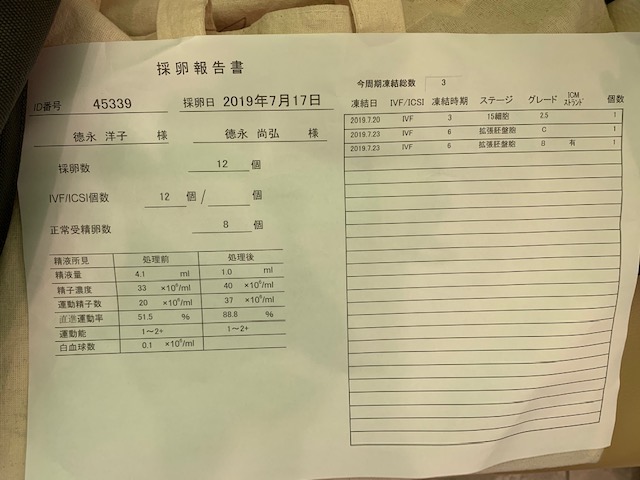 採卵報告書
ID番号 45339 採卵日 2019年7月17日
徳永 洋子 様 徳永 尚弘 様
採卵数 12 個
IVF/ICSI個数 12 個 / 個
正常受精卵数 8 個
精液所見 処理前 処理後
精液量 4.1 ml 1.0 ml
精子濃度 33 ×10⁶/ml 40 ×10⁶/ml
運動精子数 20 ×10⁶/ml 37 ×10⁶/ml
直進運動率 51.5 % 88.8 %
運動能 1～2+ 1～2+
白血球数 0.1 ×10⁶/ml
今周期凍結総数 3
凍結日 IVF/ICSI 凍結時期 ステージ グレード ICMストランド 個数
2019.7.20 IVF 3 15細胞 2.5 1
2019.7.23 IVF 6 拡張胚盤胞 C 1
2019.7.23 IVF 6 拡張胚盤胞 B 有 1